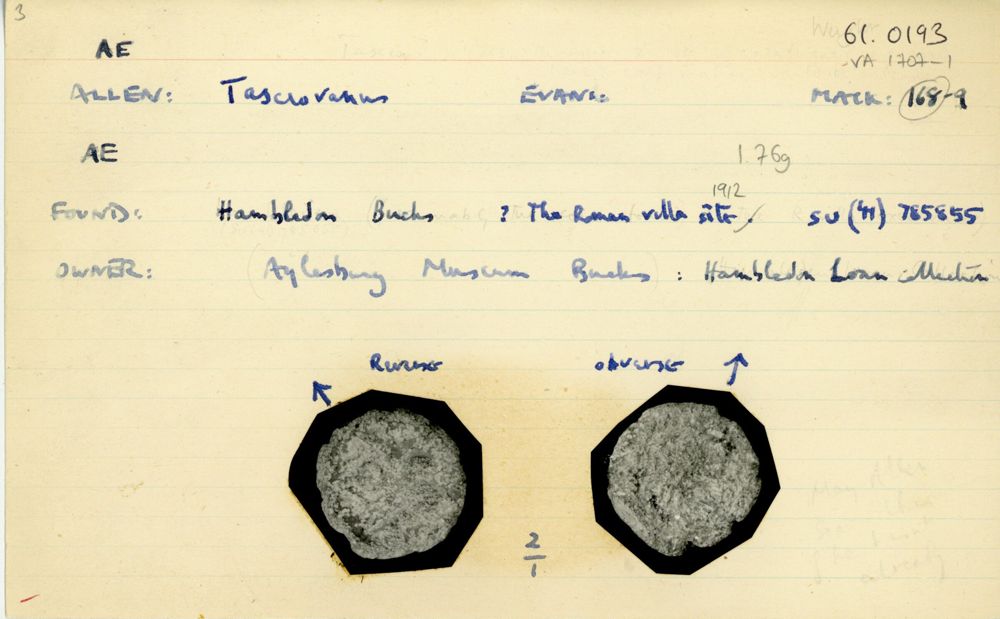 3
61.0193
VA 1707-1
AE
ALLEN: Tasciovanus EVANS: MACK: 168-9
AE 1.76g
1912
FOUND: Hambledon Bucks ? The Roman villa site. SU (41) 785855
OWNER: (Aylesbury Museum Bucks) : Hambledon Loan collection
Reverse obverse
2/1